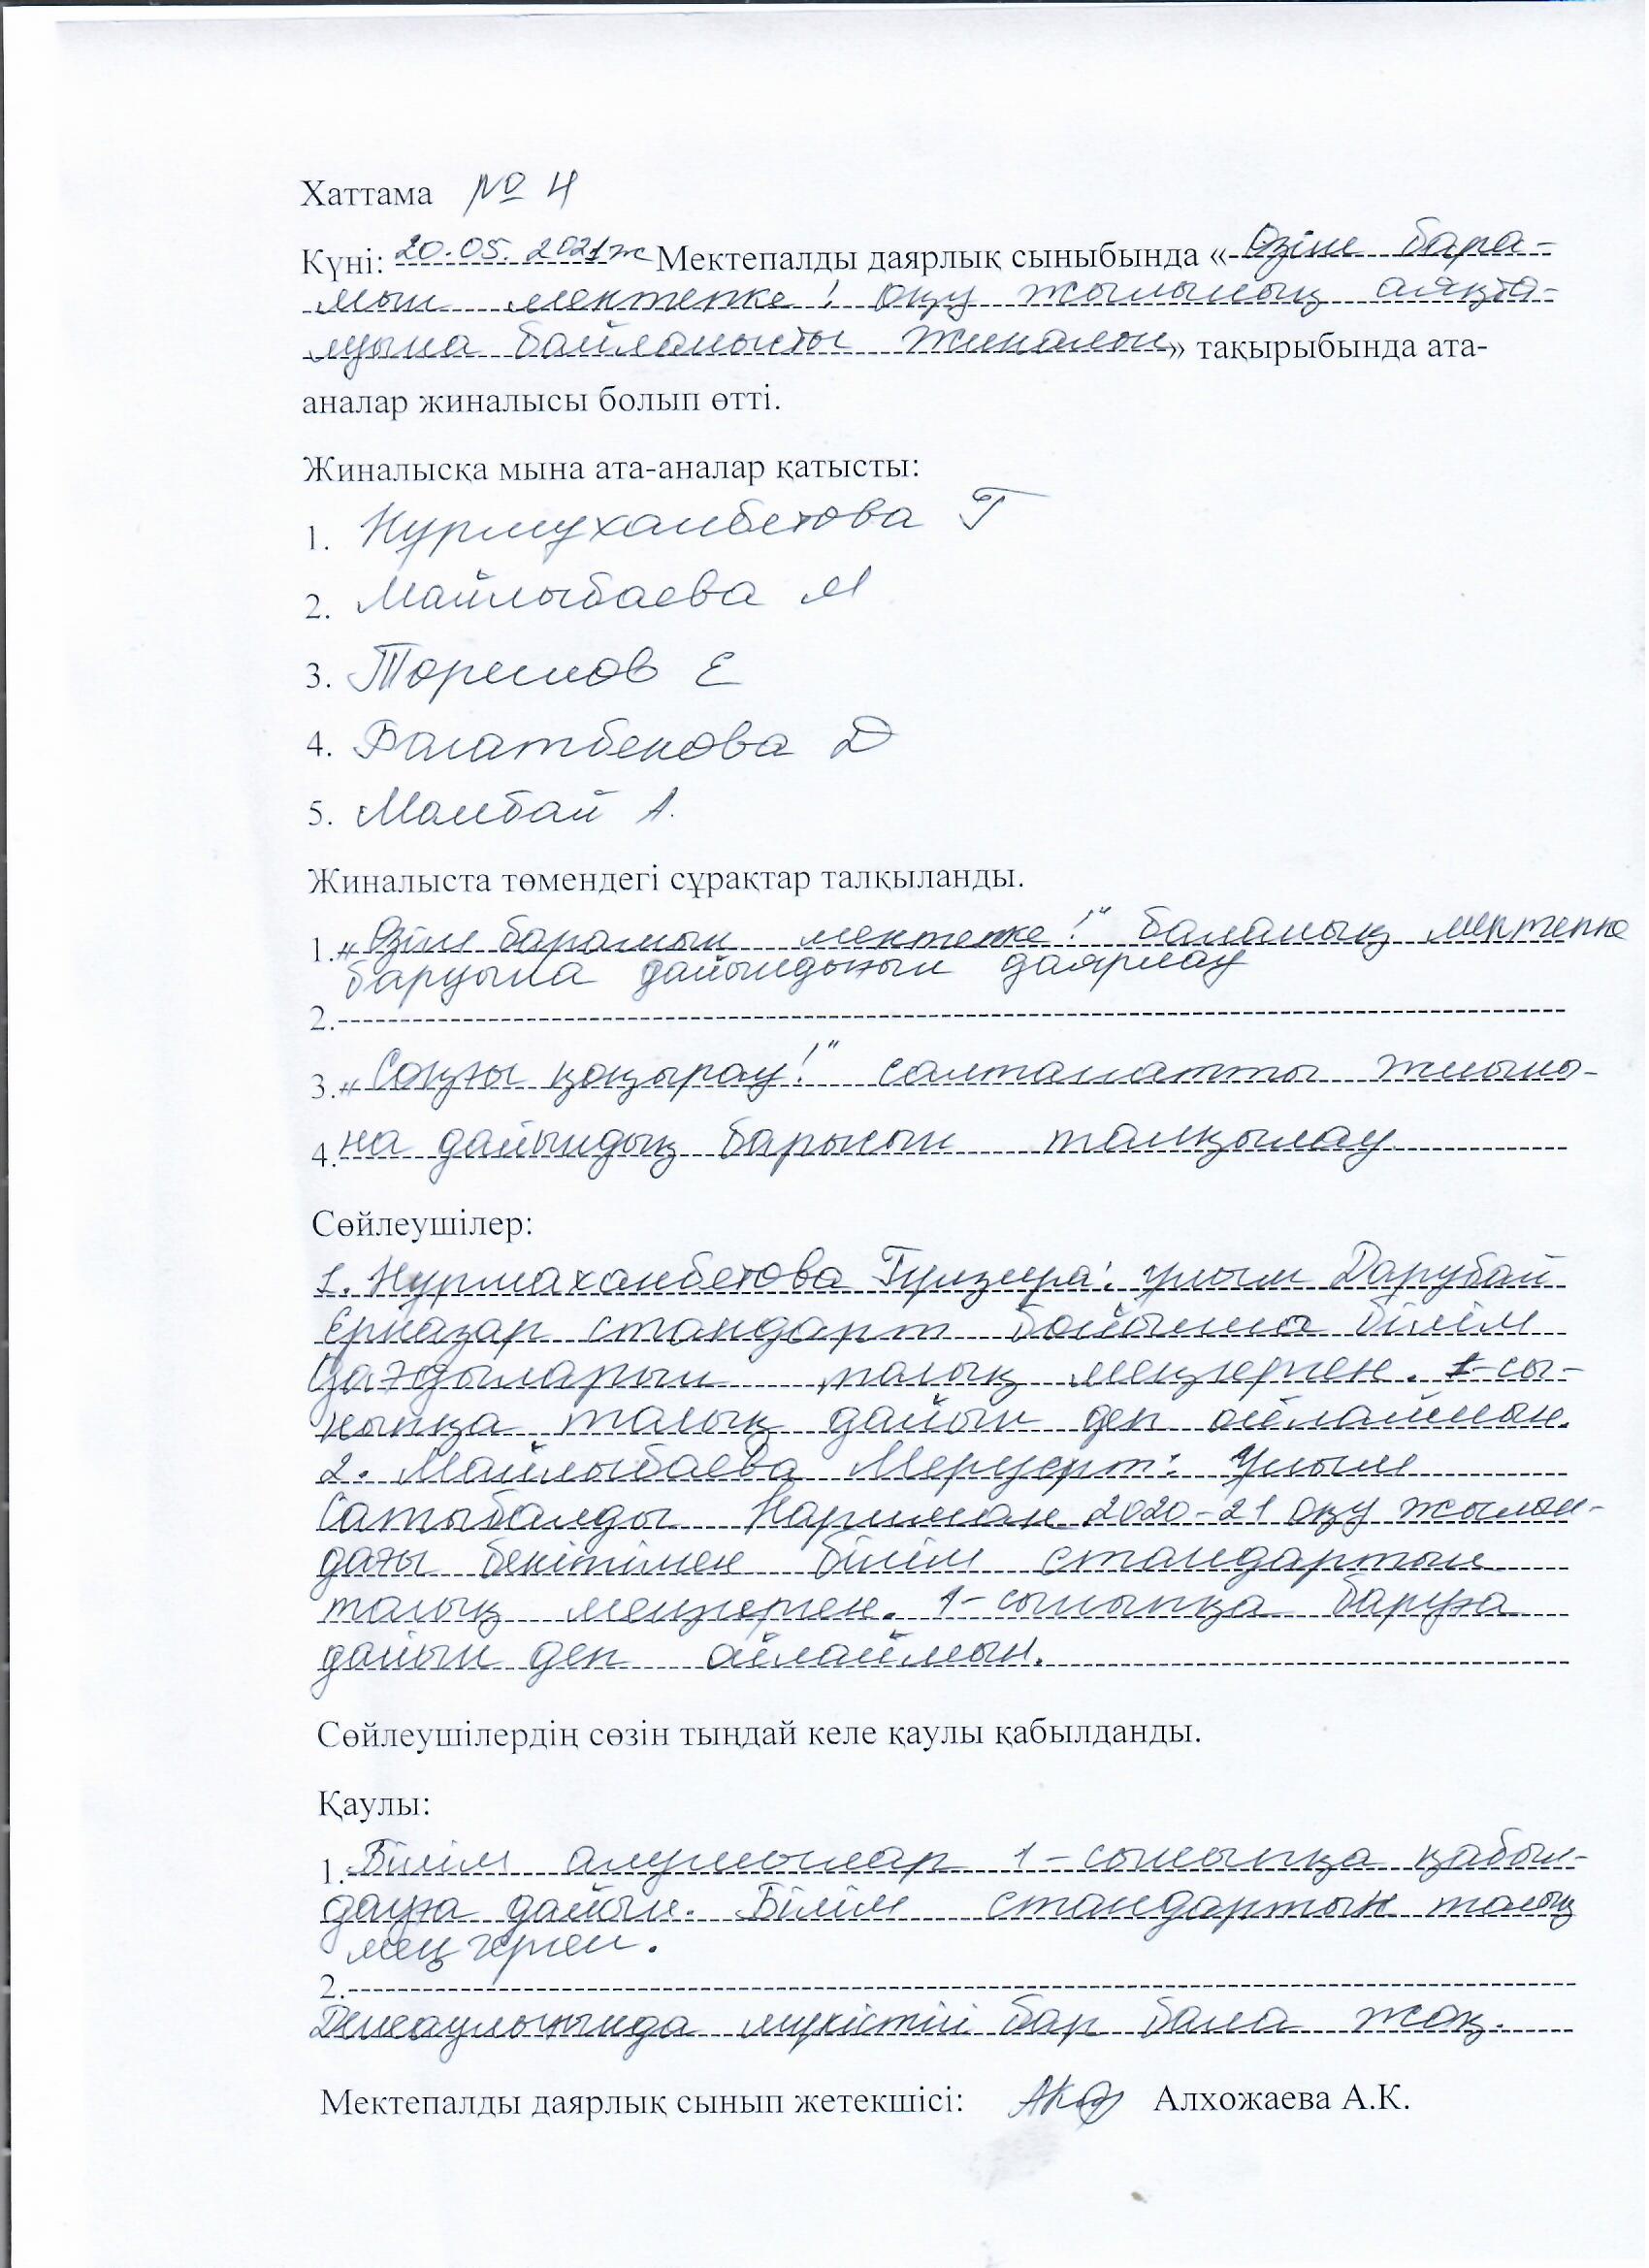 Хаттама № 4
Күні: 20.05.2021ж Мектепалды даярлық сыныбында «Өзім бара-
мын мектепке! оқу жылының аяқта-
луына байланысты жиналыс» тақырыбында ата-
аналар жиналысы болып өтті.
Жиналысқа мына ата-аналар қатысты:
1. Нурмуханбетова Г
2. Майлыбаева М
3. Торешов Е
4. Болатбекова Д
5. Мамбай А.
Жиналыста төмендегі сұрақтар талқыланды.
1. „Өзім барамын мектепке!“ баланың мектепке
баруына дайындығын даярлау
2.
3. „Соңғы қоңырау!“ салтанатты жиыны-
4. на дайындық барысын талқылау
Сөйлеушілер:
1. Нурмаханбетова Гулзира: Ұлым Дарубай
Ерназар стандарт бойынша білім
дағдыларын толық меңгерген. 1-сы-
ныпқа толық дайын деп ойлаймын.
2. Майлыбаева Меруерт: Ұлым
Сатыбалды Нариман 2020-21 оқу жылын-
дағы бекітілген білім стандартын
толық меңгерген. 1-сыныпқа баруға
дайын деп ойлаймын.
Сөйлеушілердің сөзін тыңдай келе қаулы қабылданды.
Қаулы:
1. Білім алушылар 1-сыныпқа қабыл-
дауға дайын. Білім стандартын толық
меңгерген.
2.
Денсаулығында мүкістігі бар бала жоқ.
Мектепалды даярлық сынып жетекшісі: Алхожаева А.К.